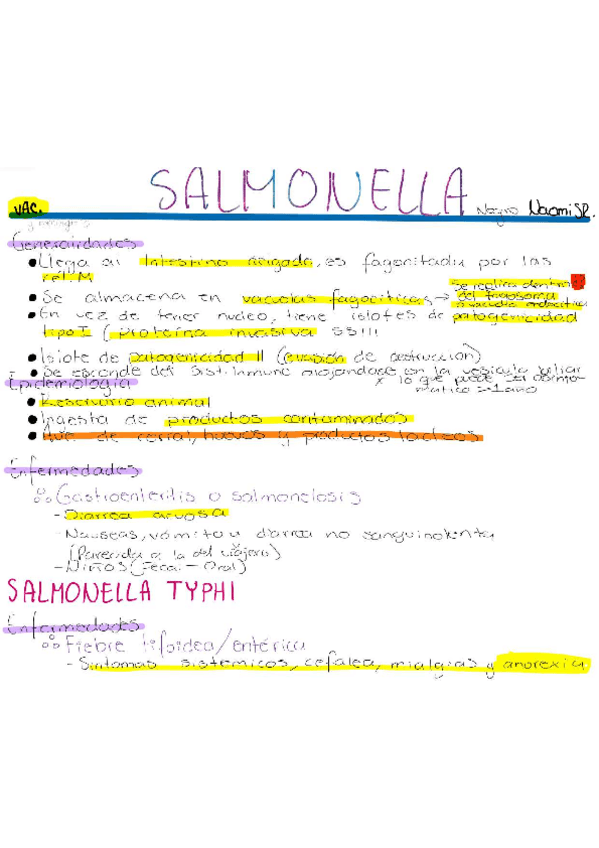 SALMONELLA
VAC.
Negro Naomi SR.
Generalidades
• Llega al Intestino delgado, es fagocitada por las
cél. M
• Se almacena en vacuolas fagocíticas → Se replica dentro
del fagosoma
o vacuola endocítica
• En vez de tener nucleo, tiene islotes de patogenicidad
tipo I (proteína invasiva SS!!!
• Islote de patogenicidad II (evasión de destrucción)
• Se esconde del Sist. Inmune alojandose en la vesícula biliar
x lo que puede ser asinto-
mático >1 año
Epidemiología
• Reservorio animal
• Ingesta de productos contaminados
• Ave de corral, huevos y productos lacteos
Enfermedades
Gastroenteritis o salmonelosis
- Diarrea acuosa
- Nauseas, vómito y diarrea no sanguinolenta
(Parecida a la del viajero)
- Niños (Fecal - Oral)
SALMONELLA TYPHI
Enfermedades
Fiebre tifoidea/entérica
- Síntomas sistémicos, cefalea, mialgias y anorexia